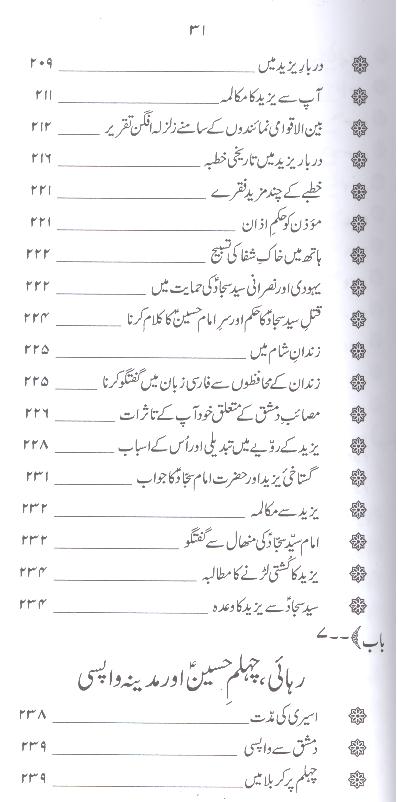 ۳۱
دربارِ یزید میں ۲۰۹
آپ سے یزید کا مکالمہ ۲۱۱
بین الاقوامی نمائندوں کے سامنے زلزلہ افگن تقریر ۲۱۲
دربار یزید میں تاریخی خطبہ ۲۱۶
خطبے کے چند مزید فقرے ۲۲۱
مؤذن کو حکمِ اذان ۲۲۱
ہاتھ میں خاکِ شفا کی تسبیح ۲۲۲
یہودی اور نصرانی سید سجادؑ کی حمایت میں ۲۲۲
قتلِ سید سجادؑ کا حکم اور سرِ امام حسینؑ کا کلام کرنا ۲۲۴
زندانِ شام میں ۲۲۵
زندان کے محافظوں سے فارسی زبان میں گفتگو کرنا ۲۲۵
مصائبِ دمشق کے متعلق خود آپ کے تاثرات ۲۲۶
یزید کے رویّے میں تبدیلی اور اُس کے اسباب ۲۲۸
گستاخیٔ یزید اور حضرت امام سجادؑ کا جواب ۲۳۱
یزید سے مکالمہ ۲۳۲
امام سیّد سجادؑ کی منھال سے گفتگو ۲۳۲
یزید کا کُشتی لڑنے کا مطالبہ ۲۳۴
سید سجادؑ سے یزید کا وعدہ ۲۳۴
باب ﴾۔۔۷
رہائی، چہلمِ حسینؑ اور مدینہ واپسی
اسیری کی مدّت ۲۳۸
دمشق سے واپسی ۲۳۹
چہلم پر کربلا میں ۲۳۹